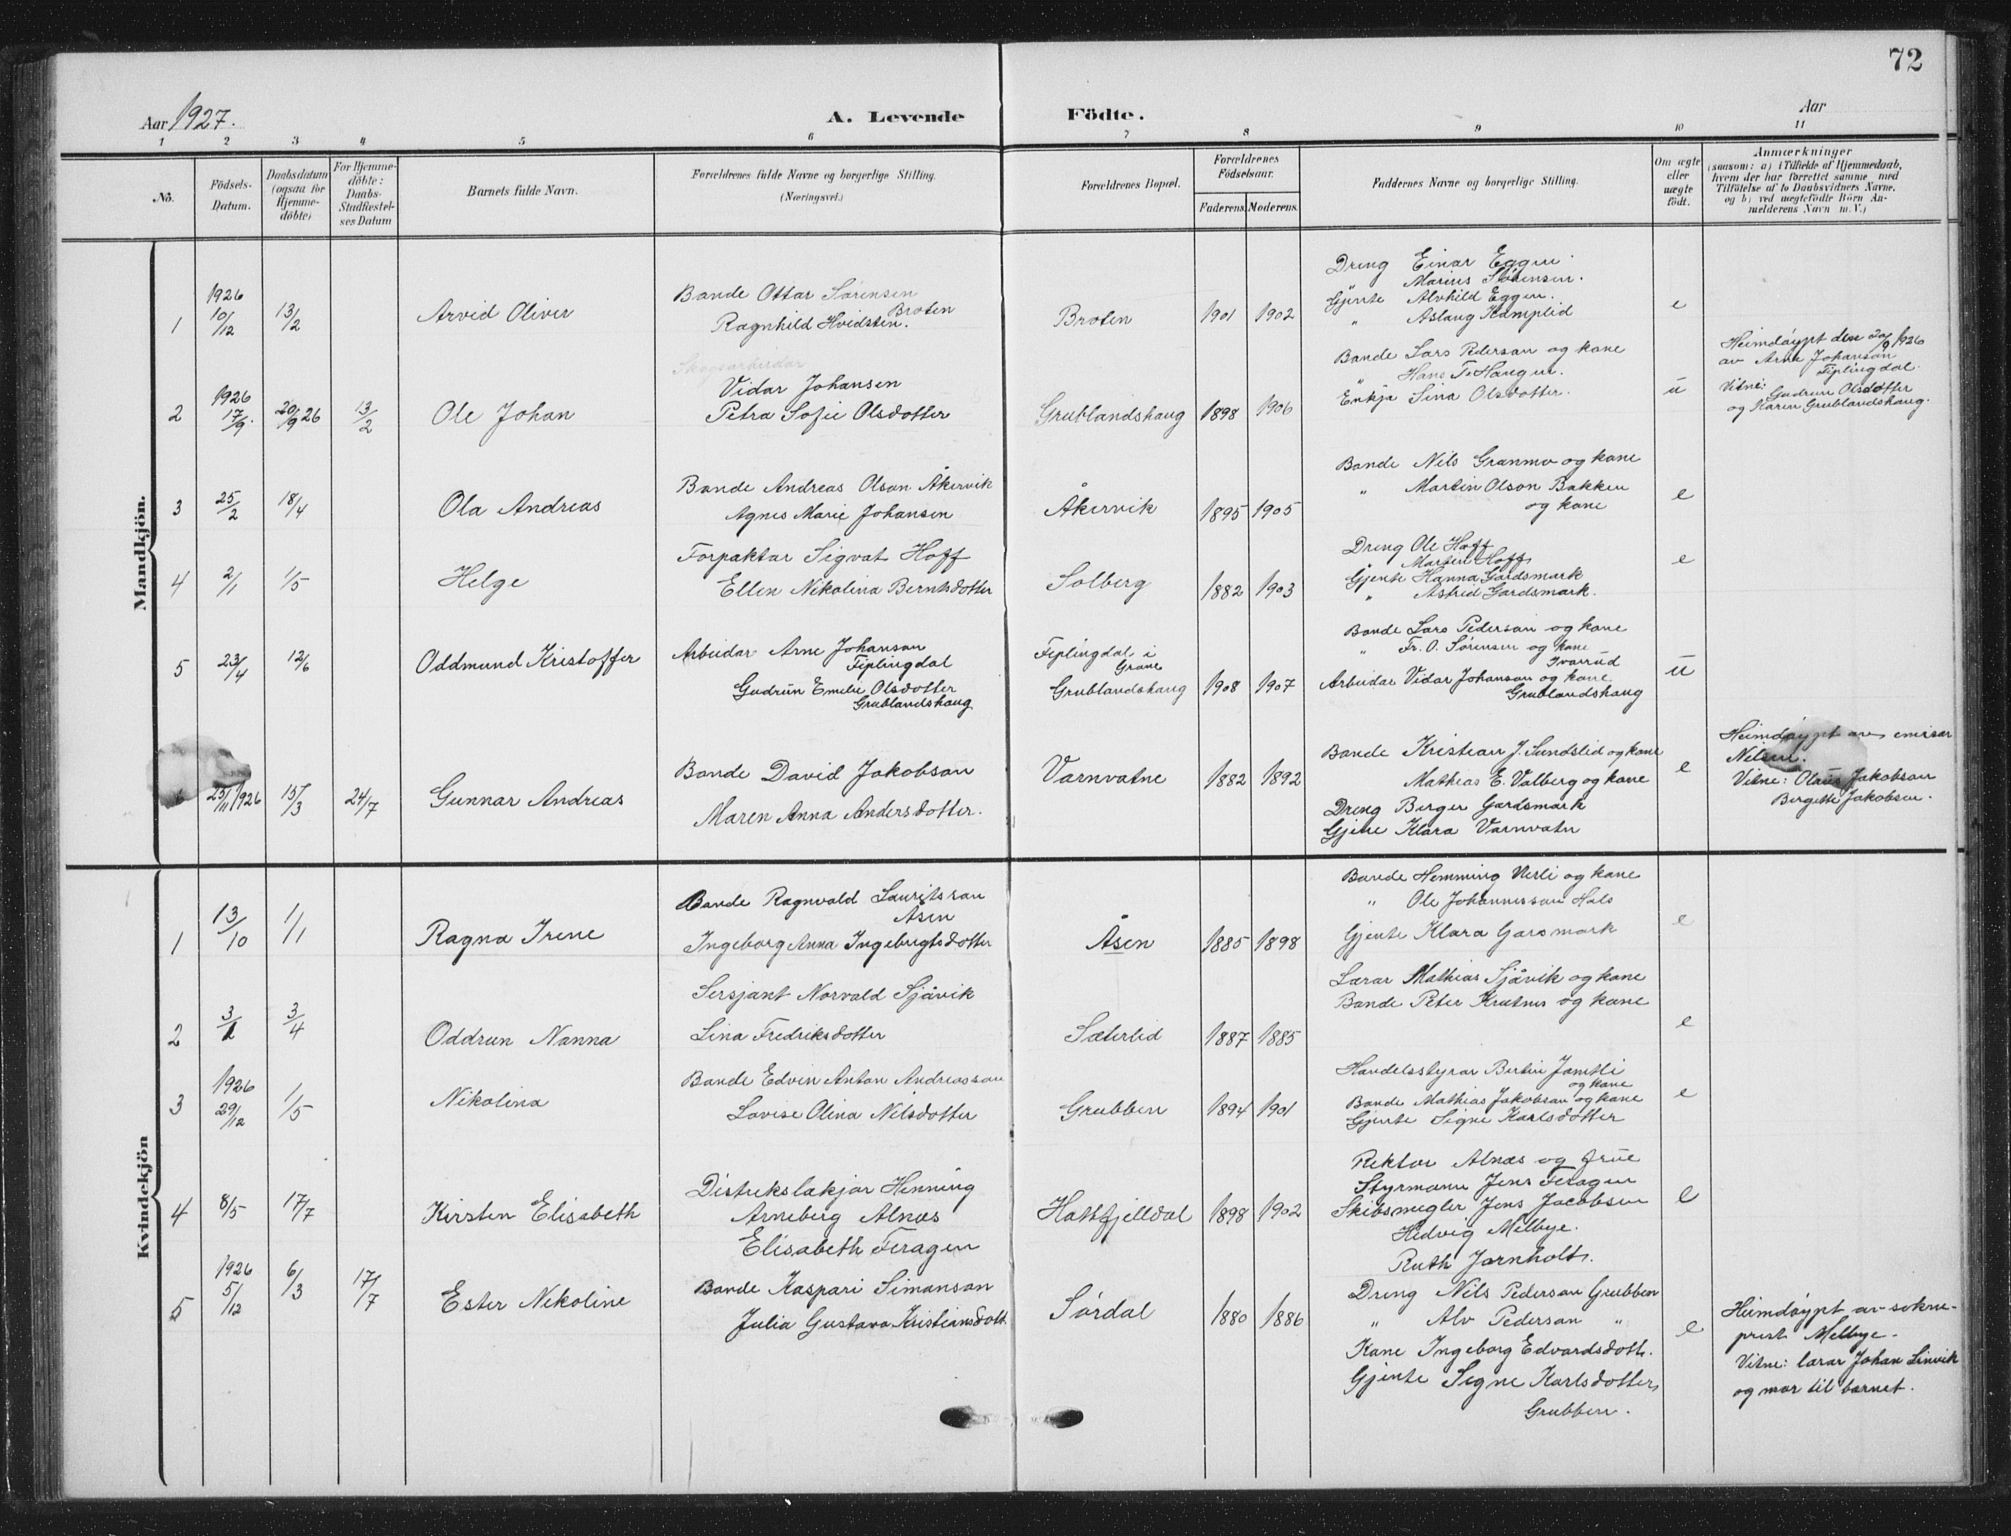 72
Aar 1927.
A. Levende Födte.
Aar
1 2 3 4 5 6 7 8 9 10 11
No.
Födsels-
Datum.
Daabsdatum
(ogsaa for
Hjemme-
döbte)
For Hjemme-
döbte:
Daabs-
Stadfæstel-
ses Datum
Barnets fulde Navn.
Forældrenes fulde Navne og borgerlige Stilling.
(Næringsvei.)
Forældrenes Bopæl.
Forældrenes
Födselsaar.
Faderens. Moderens.
Faddernes Navne og borgerlige Stilling.
Om ægte
eller
uægte
født.
Anmærkninger
(saasom: a) i Tilfælde af Hjemmedaab,
hvem der har forrettet samme med
Tilföielse af to Daabsvidners Navne.
og b) ved uægtefödte Börn An-
melderens Navn m. V.)
Mandkjön.
1
1926
10/12
13/2
Arvid Oliver
Bonde Ottar Sørensen
Broten
Ragnhild Hvidsten.
Broten
1901 1902
Dreng Einar Eggen
„ Marius Sørensen.
Gjente Alvhild Eggen.
„ Aslaug Kamplid
e
2
1926
17/9.
20/9 26
13/2
Ole Johan
Skogsarbeidar
Vidar Johansen
Petra Sofie Olsdotter
Grublandshaug
1898 1906
Bonde Lars Pederson og kone
„ Hans T. Haugen.
Enkja Sina Olsdotter.
u
Heimdøypt den 20/9 1926
av Arne Johanson
Fiplingdal.
Vitne:
Gudrun Olsdotter
og Karen Grublandshaug.
3
25/2
18/4
Ola Andreas
Bonde Andreas Olson Åkervik
Agnes Marie Johansen
Åkervik
1895 1905
Bonde Nils Granmo og kone
„ Martin Olson Bakken
og kone
e
4
2/1
1/5
Helge
Forpaktar Sigvat Hoff
Ellen Nikolina Berntsdotter
Solberg
1882 1903
Dreng Ole Hoff
„ Martin Hoff
Gjente Hanna Gardsmark
„ Astrid Gardsmark.
e
5
23/4
12/6
Oddmund Kristoffer
Arbeidar Arne Johanson
Fiplingdal
Gudrun Emelie Olsdotter
Grublandshaug
Fiplingdal i
Grane
Grublandshaug
1908 1907
Bonde Lars Pederson og kone
„ Fr. O. Sørensen og kone
Ivarrud
Arbeidar Vidar Johanson og kone
Grublandshaug
u
6
25/11 1926
15/3
24/7
Gunnar Andreas
Bonde David Jakobson
Maren Anna Andersdotter.
Varnvatne
1882 1892
Bonde Kristian J. Sundslid og kone
Mathias E. Valberg og kone
Dreng Birger Gardsmark
Gjente Klara Varnvatn
e
Heimdøypt av emisær
Nelsen.
Vitne: Olaus Jakobson
Bergitte Jakobsen.
Kvindekjön
1
13/10
1/1
Ragna Irene
Bonde Ragnvald Lauritsson
Åsen
Ingeborg Anna Ingebrigtsdotter
Åsen
1885 1898
Bonde Hemming Verli og kone
„ Ole Johannesson Hals
Gjente Klara Garsmark
e
2
3/1
3/4
Oddrun Nanna
Sersjant Norvald Sjåvik
Lina Fredriksdotter
Sæterlid
1887 1885
Lærar Mathias Sjåvik og kone
Bonde Peter Krutnes og kone
e
3
1926
29/12
1/5
Nikolina
Bonde Edvin Anton Andreasson
Lovise Olina Nilsdotter
Grubben
1894 1901
Handelsstyrar Bertin Jamtli
og kone
Bonde Mathias Jakobson og kone
Gjente Signe Karlsdotter
e
4
8/5
17/7
Kirsten Elisabeth
Distrikslækjar Henning
Arneberg Alnæs
Elisabeth Feragen
Hattfjelldal
1898 1902
Rektor Alnæs og frue
Styrmann Jens Feragen
Skibsmegler Jens Jacobsen
Hedvig Melbye.
Ruth Jarnholt.
e
5
1926
5/12
6/3
17/7
Ester Nikoline
Bonde Kaspari Simonson
Julia Gustava Kristiansdott.
Sørdal
1880 1886
Dreng Nils Pederson Grubben
„ Alv Pederson „
Kone Ingeborg Edvardsdott.
Gjente Signe Karlsdotter,
Grubben.
e
Heimdøypt av sokne-
prest Melbye.
Vitne: lærar Johan Linvik
og mor til barnet.